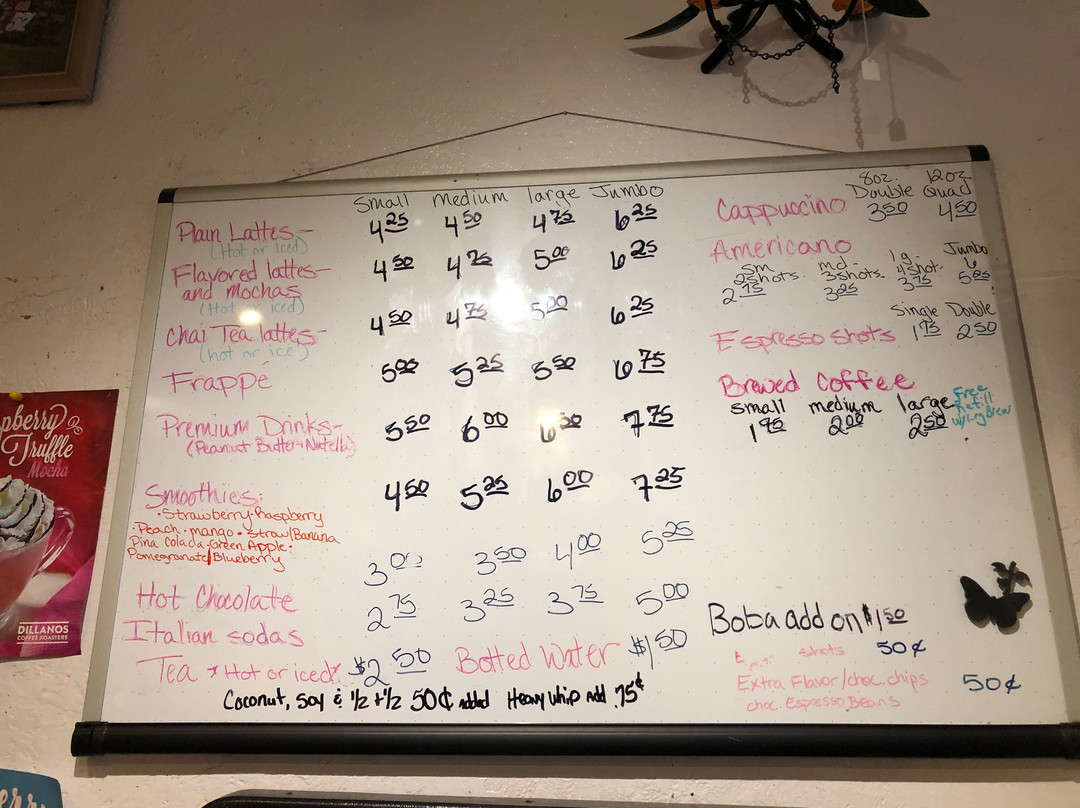 Small medium large Jumbo
Plain Lattes- 4 25 4 50 4 75 6 25
(Hot or Iced)
Flavored lattes- 4 50 4 75 5 00 6 25
and mochas
(Hot iced)
Chai Tea lattes- 4 50 4 75 5 00 6 25
(hot or ice)
Frappé 5 00 5 25 5 50 6 75
Premium Drinks- 5 50 6 00 6 50 7 75
(Peanut Butter + Nutella)
Smoothies: 4 50 5 25 6 00 7 25
• Strawberry • Raspberry
• Peach • mango • Straw/Banana
Pina Colada • Green Apple •
Pomegranate/Blueberry
Hot Chocolate 3 00 3 50 4 00 5 25
Italian sodas 2 75 3 25 3 75 5 00
Tea *Hot or iced* $2 50 Botted Water $1 50
Coconut, Soy & 1/2 + 1/2 50¢ added Heavy Whip Add .75¢
8oz. 12oz
Double Quad
Cappuccino 3 50 4 50
Americano
sm md- lg. Jumbo
2shots. 3shots. 4shot. 6
2 75 3 25 3 75
Single Double
Espresso shots 1 75 2 50
Brewed Coffee
small medium large
2 00 2 50
Free
Refill
w/Lrg Brew
Boba add on $1 50
shots 50¢
Extra Flavor/choc. chips 50¢
choc. Espresso Beans
pberry
Truffle
Mocha
DILLANOS
COFFEE ROASTERS